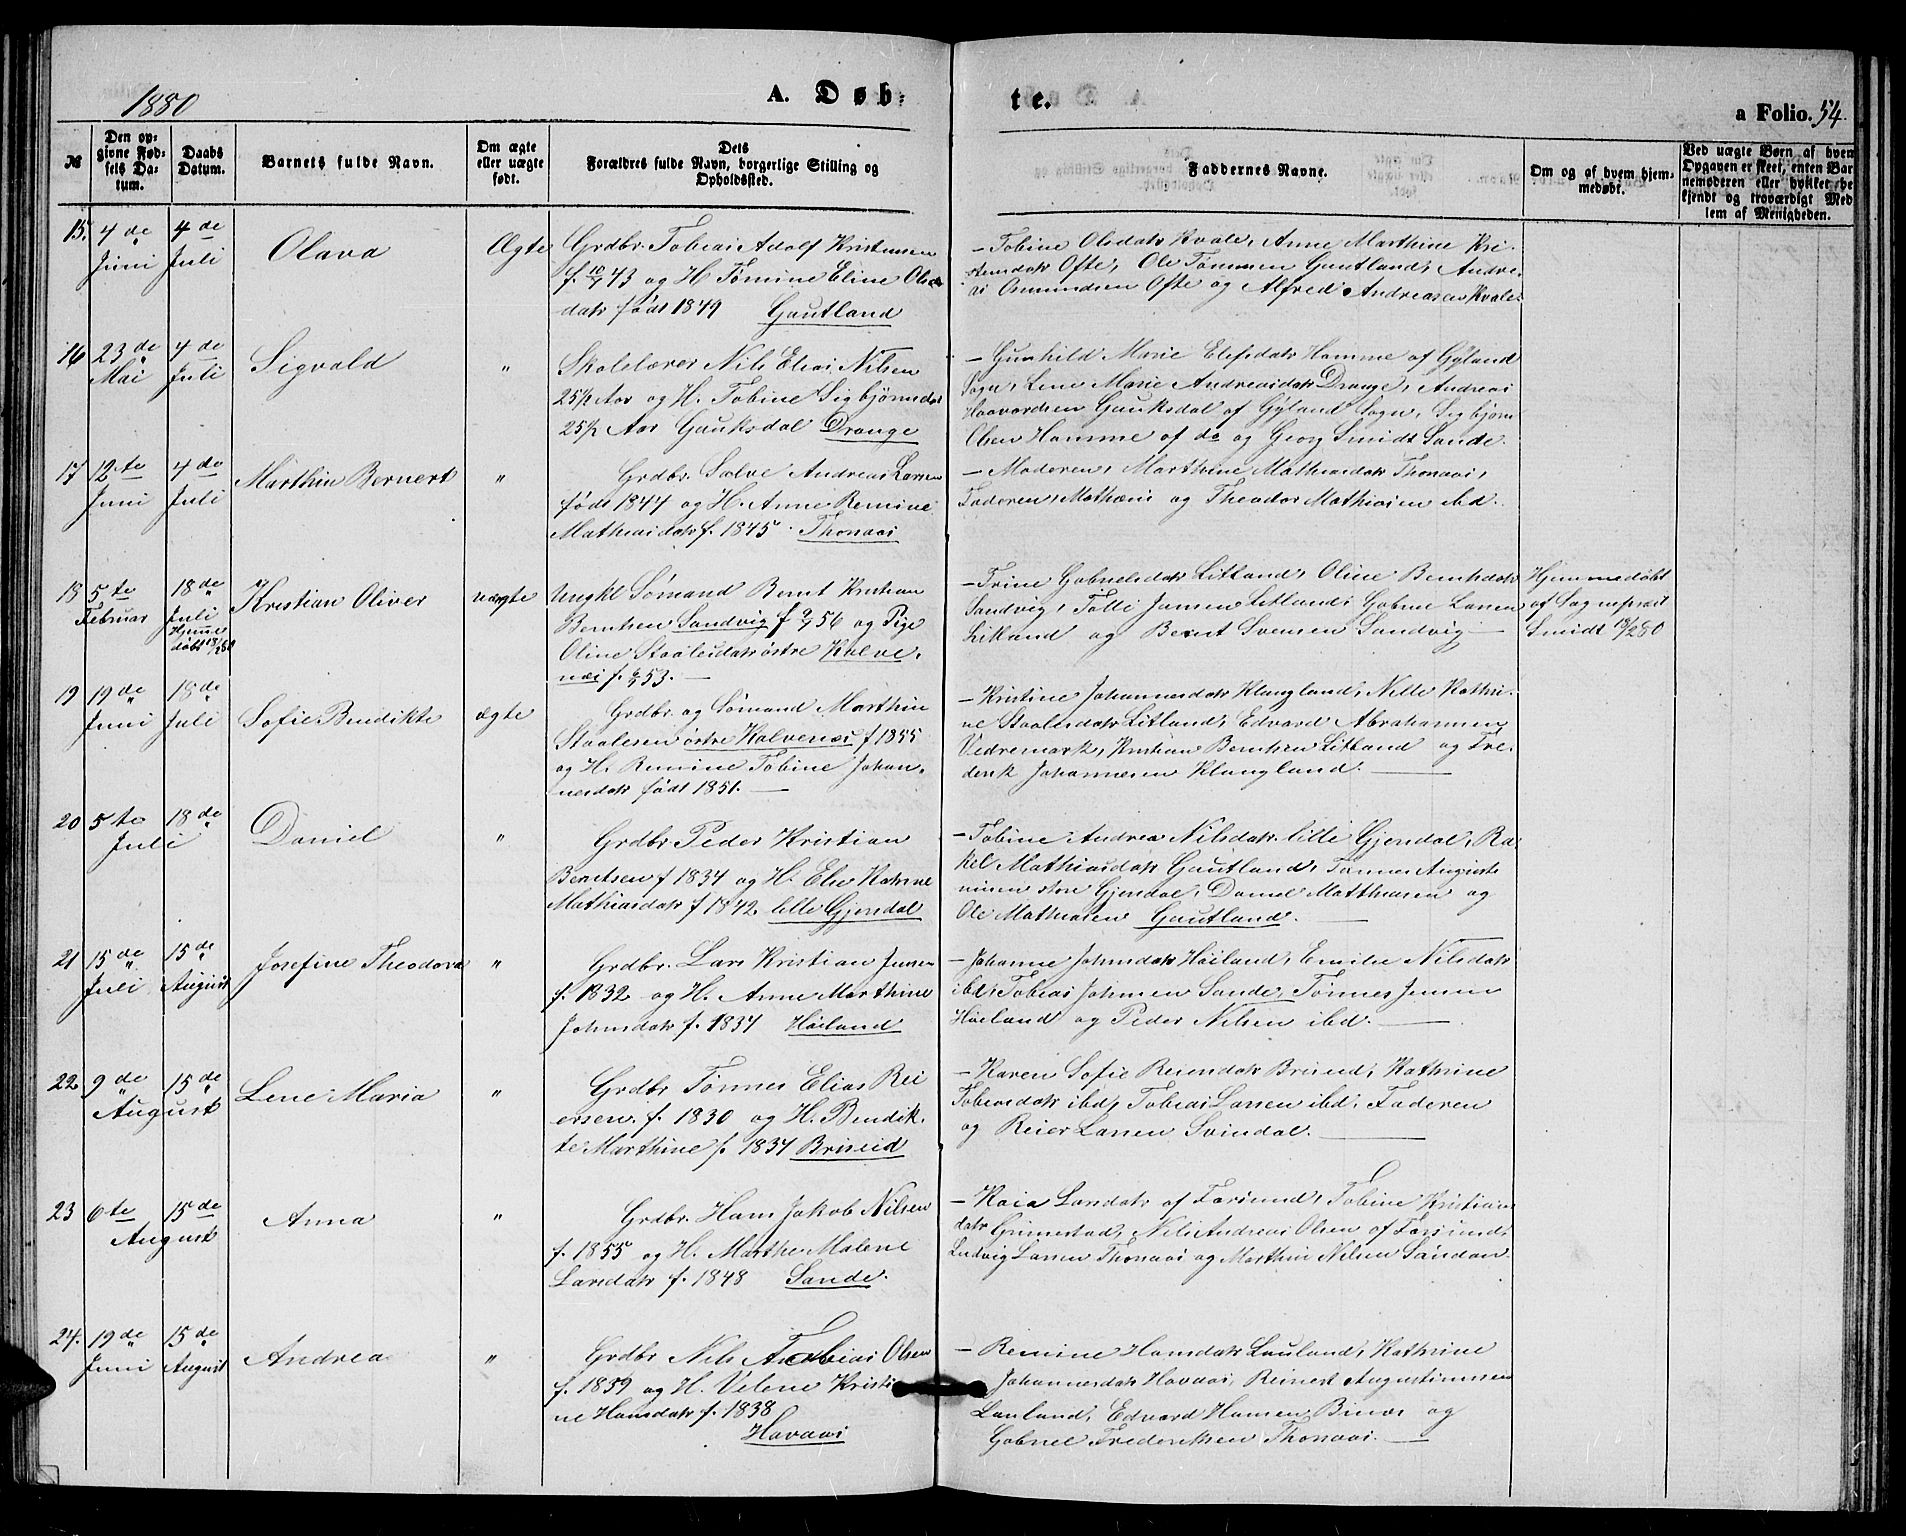 1880
A. Døb-
te.
a Folio. 54.
№
Den op-
givne Fød-
sels Da-
tum.
Daabs
Datum.
Barnets fulde Navn.
Om ægte
eller uægte
født.
Dets
Forældres fulde Navn, borgerlige Stilling og
Opholdssted.
Faddernes Navne.
Om og af hvem hjem-
medøbt.
Ved uægte Børn af hvem
Opgaven er skeet, enten Bar-
nemoderen eller hvilket be-
kjendt og troværdigt Med-
lem af Menigheden.
15. 4de Juni
4de Juli
Olava
Ægte
Grdbr. Tobias Adolf Kristensen
f. 43 og H. Tomine Eline Ols-
datr født 1849 Gautland
– Tobine Olsdatr Kvale, Anne Marthine Kri-
stensdatr Ofte, Ole Tønnesen Gautland, Andre-
as Osmundsen Ofte og Alfred Andreasen Kvale.
16 23de Mai
4de Juli
Sigvald
"
Skolelærer Nils Elias Nilsen
25½ Aar og H. Tobine Sigbjørnsdatr
25½ Aar Gauksdal Drange
– Gunhild Marie Elefsdatr Homme af Gyland
Sogn, Lene Marie Andreasdatr Drange, Andreas
Haavordsen Gauksdal af Gyland Sogn, Sigbjørn
Olsen Homme af do og Georg Smidt Sande.
17 12te Juni
4de Juli
Marthin Bernert
"
Grdbr. Salve Andreas Larsen
født 1844 og H. Anne Remine
Mathiasdatr f. 1845. Thonaas
– Moderen, Marthine Mathiasdatr Thonaas,
Faderen, Mathæus og Theodor Mathiasen ibd.
18 5te Februar
18de Juli
Hjemme
døbt 18/2 80
Kristian Oliver
uægte
Ungkl Sømand Bernt Kristian
Berntsen Sandvig f 56 og Pige
Oline Staalesdatr østre Kalve-
næs f. 53. —
– Trine Gabrielsdatr Litland, Oline Berntsdatr
Sandvig, Tolli Jansen Litland, Gabriel Larsen
Litland og Bernt Svensen Sandvig —
Hjemmedøbt
af Sognepræst
Smidt 18/2 80
19 19de Juni
18de Juli
Sofie Bendikte
ægte
Grdbr. og Sømand Marthin
Staalesen østre Kalvenæs f 1855
og H. Remine Tobine Johan-
nesdatr født 1851. —
– Kristine Johannesdatr Klungland, Nille Kathri-
ne Staalesdatr Litland, Edvard Abrahamsen
Vedremark, Kristian Berntsen Litland og Fre-
derik Johannesen Klungland. —
20 5te Juli
18de
Daniel
"
Grdbr. Peder Kristian
Berentsen f 1834 og H. Elie Katrine
Mathiasdatr f 1842. lille Gjendal
– Tobine Andrea Nilsdatr lille Gjendal, Ra-
kel Mathiasdatr Gautland, Tønnes Augusti-
nusen store Gjendal, Daniel Matthiasen og
Ole Mathiasen Gautland. —
21 15de Juli
15de August
Josefine Theodora
"
Grdbr. Lars Kristian Jensen
f. 1832 og H. Anne Marthine
Johnsdatr f. 1837 Høiland
– Johanne Johnsdatr Høiland, Emilie Nilsdatr
ibd, Tobias Johnsen Sande, Tønnes Jensen
Høiland og Peder Nilsen ibd. —
22. 9de August
15de
Lene Maria
"
Grdbr Tønnes Elias Rei
ersen f. 1830 og H. Bendik-
te Marthine f. 1837 Briseid
– Karen Sofie Reiersdatr Briseid, Kathrine
Tobiasdatr ibd, Tobias Larsen ibd, Faderen
og Reier Larsen Svindal. —
23 6te August
15de
Anna
"
Grdbr. Hans Jakob Nilsen
f. 1855 og H. Marthe Malene
Larsdatr f. 1848 Sande.
– Kaia Larsdatr af Farsund, Tobine Kristians
datr Grimestad, Nils Andreas Olsen af Farsund,
Ludvig Larsen Thonaas og Marthin Nilsen Sandan
24. 19de Juni
15de August
Andrea
"
Grdbr Nils Tobias Olsen
f. 1839 og H. Velene Kristi-
ne Hansdatr f. 1838
Havaas
– Remine Hansdatr Lauland, Kathrine
Johannesdatr Havaas, Reinert Augustinusen
Lauland, Edvard Hansen og
Gabriel Frederiksen Thonaas. —